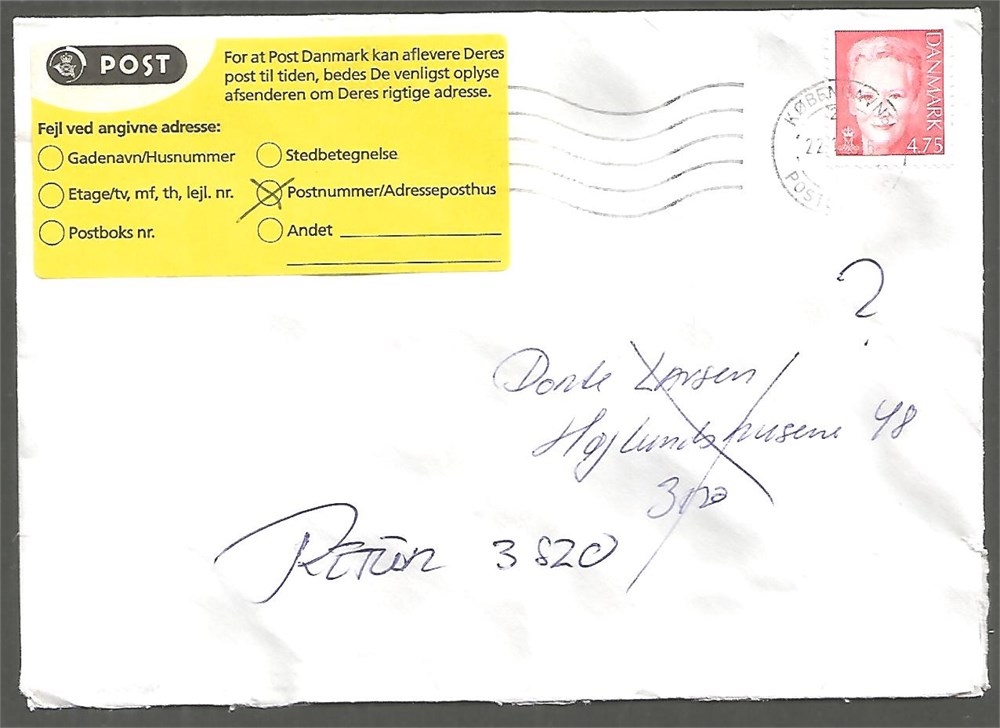 POST
For at Post Danmark kan aflevere Deres
post til tiden, bedes De venligst oplyse
afsenderen om Deres rigtige adresse.
Fejl ved angivne adresse:
Gadenavn/Husnummer
Stedbetegnelse
Etage/tv, mf, th, lejl. nr.
Postnummer/Adresseposthus
Postboks nr.
Andet
DANMARK
4.75
KØBENHAVN
22
POST
?
Dorte Larsen
Højlundshusene 48
RETUR 3520